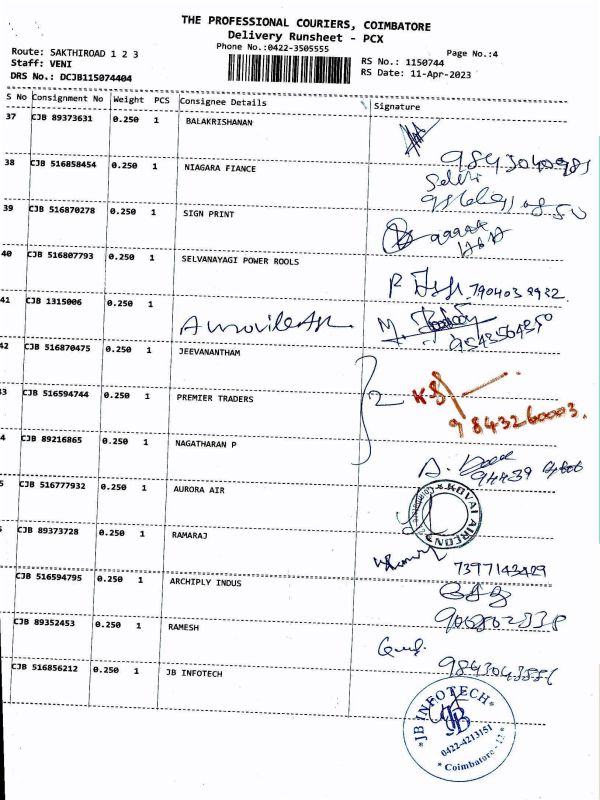 THE PROFESSIONAL COURIERS, COIMBATORE
Delivery Runsheet - PCX
Phone No.:0422-3505555
Page No.:4
Route: SAKTHIROAD 1 2 3
Staff: VENI
DRS No.: DCJB115074404
RS No.: 1150744
RS Date: 11-Apr-2023
S No Consignment No Weight PCS Consignee Details Signature
37 CJB 89373631 0.250 1 BALAKRISHANAN
9843040981
38 CJB 516858454 0.250 1 NIAGARA FIANCE
39 CJB 516870278 0.250 1 SIGN PRINT
40 CJB 516807793 0.250 1 SELVANAYAGI POWER ROOLS
7904032932
41 CJB 1315006 0.250 1
42 CJB 516870475 0.250 1 JEEVANANTHAM
2
43 CJB 516594744 0.250 1 PREMIER TRADERS
9843260003.
4 CJB 89216865 0.250 1 NAGATHARAN P
94439
5 CJB 516777932 0.250 1 AURORA AIR
KOVAI AIRCON
CJB 89373728 0.250 1 RAMARAJ
7397143429
CJB 516594795 0.250 1 ARCHIPLY INDUS
CJB 89352453 0.250 1 RAMESH
CJB 516856212 0.250 1 JB INFOTECH
JB INFOTECH
JB
0422-4213151
Coimbatore - 12